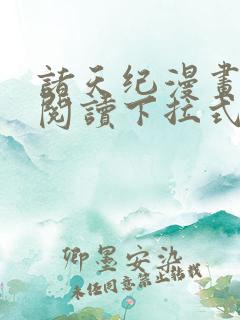 諸天纪漫畫
閱讀下拉式
卿墨安染
未经同意禁止转载